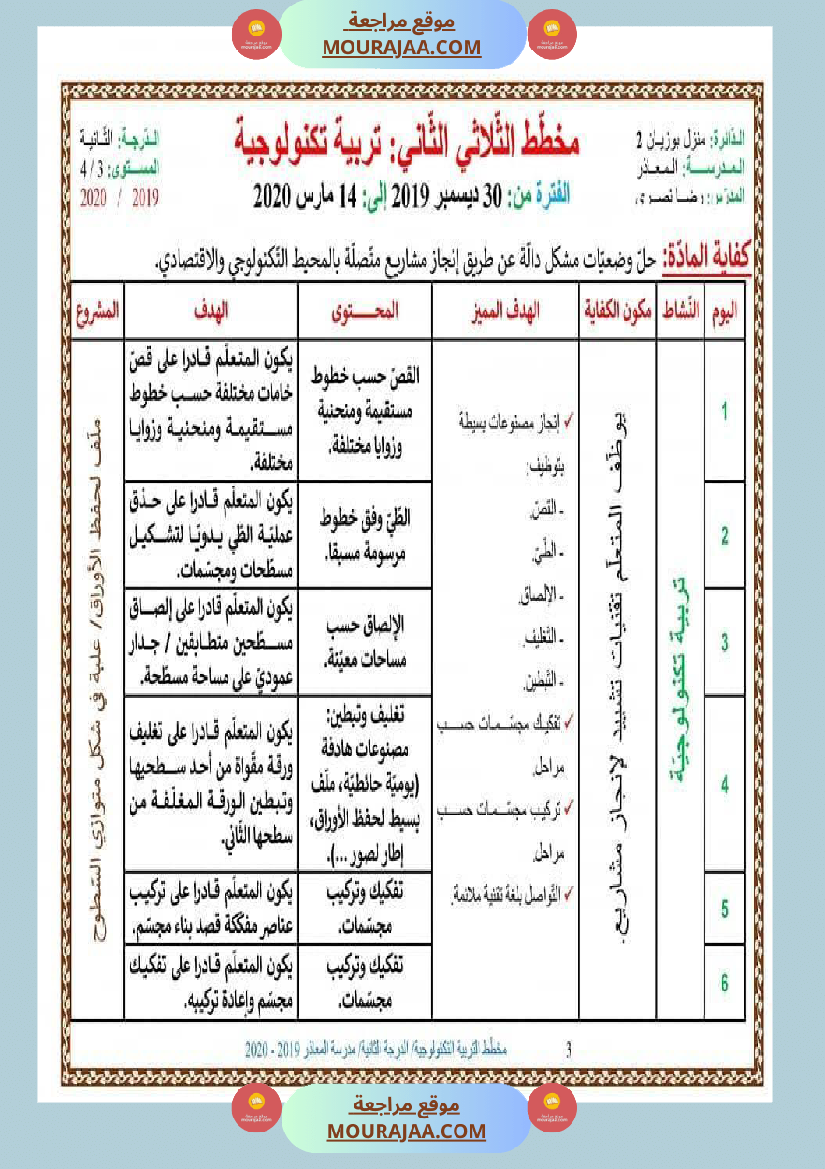 موقع مراجعة
MOURAJAA.COM
الدّائرة: منزل بوزيان 2
المدرسة: المعاذر
المدرّس: رضا نصري
مخطّط الثّلاثي الثّاني: تربية تكنولوجية
الفترة من: 30 ديسمبر 2019 إلى: 14 مارس 2020
الدّرجة: الثّانية
المستوى: 3 / 4
2019 / 2020
كفاية المادّة: حلّ وضعيّات مشكل دالّة عن طريق إنجاز مشاريع متّصلة بالمحيط التّكنولوجي والاقتصادي.
اليوم
النّشاط
مكون الكفاية
الهدف المميز
المحتوى
الهدف
المشروع
تربية تكنولوجيّة
يوظّف المتعلّم تقنيات تشييد لإنجاز مشاريع.
✓ إنجاز مصنوعات بسيطة
بتوظيف:
- القصّ.
- الطّيّ.
- الالصاق.
- التّغليف.
- التّبطين.
✓ تفكيك مجسّمات حسب
مراحل.
✓ تركيب مجسّمات حسب
مراحل.
✓ التّواصل بلغة تقنية ملائمة.
1
القصّ حسب خطوط
مستقيمة ومنحنية
وزوايا مختلفة.
يكون المتعلّم قادرا على قصّ
خامات مختلفة حسب خطوط
مستقيمة ومنحنية وزوايا
مختلفة.
2
الطّيّ وفق خطوط
مرسومة مسبقا.
يكون المتعلّم قادرا على حذق
عمليّة الطّي يدويّا لتشكيل
مسطّحات ومجسّمات.
3
الإلصاق حسب
مساحات معيّنة.
يكون المتعلّم قادرا على إلصاق
مسطّحين متطابقين / جدار
عموديّ على مساحة مسطّحة.
4
تغليف وتبطين:
مصنوعات هادفة
(يوميّة حائطيّة، ملف
بسيط لحفظ الأوراق،
إطار لصور ...).
يكون المتعلّم قادرا على تغليف
ورقة مقوّاة من أحد سطحيها
وتبطين الورقة المغلّفة من
سطحها الثّاني.
5
تفكيك وتركيب
مجسّمات.
يكون المتعلّم قادرا على تركيب
عناصر مفكّكة قصد بناء مجسّم.
6
تفكيك وتركيب
مجسّمات.
يكون المتعلّم قادرا على تفكيك
مجسّم وإعادة تركيبه.
ملف لحفظ الأوراق/ علبة في شكل متوازي السّطوح
3
مخطّط التّربية التّكنولوجية/ الدرجة الثانية/ مدرسة المعاذر 2019 - 2020
موقع مراجعة
MOURAJAA.COM